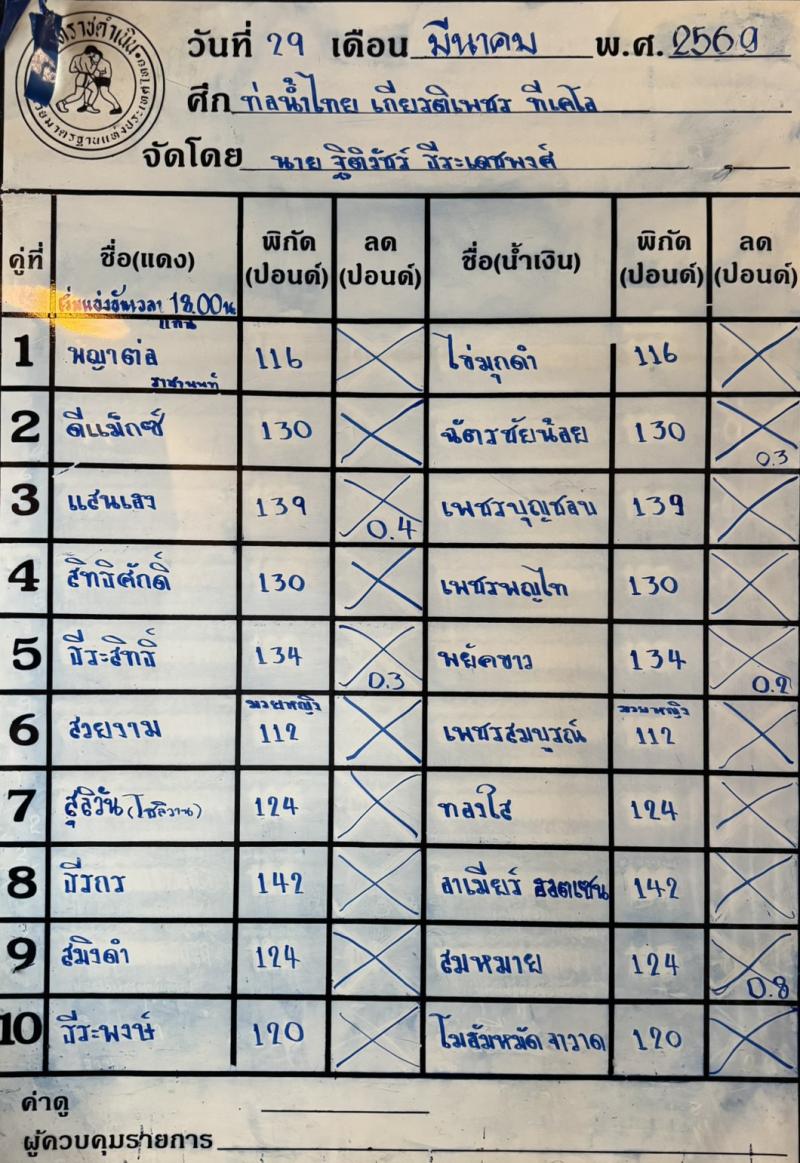 วันที่ 29 เดือน มีนาคม พ.ศ. 2569
ศึก ท่อน้ำไทย เกียรติเพชร ทีเคโอ
จัดโดย นาย ฐิติวัชร์ ธีระเดชพงศ์
คู่ที่ ชื่อ(แดง) พิกัด (ปอนด์) ลด (ปอนด์) ชื่อ(น้ำเงิน) พิกัด (ปอนด์) ลด (ปอนด์)
เริ่มแข่งขันเวลา 18.00 น
แทน
1 พญาต่อ 116 ไข่มุกดำ 116
ราชานนท์
2 ดีแม็กซ์ 130 ฉัตรชัยน้อย 130 0.3
3 แสนเฮง 139 0.4 เพชรบุญชอบ 139
4 สิทธิศักดิ์ 130 เพชรพญไท 130
5 ธีระสิทธิ์ 134 0.3 พยัคขาว 134 0.2
มวยหญิง มวยหญิง
6 สวยงาม 112 เพชรสมบูรณ์ 112
7 สุลิวัน (โซลิวาน) 124 ทองใส 124
8 ธีรกร 142 อาเมียร์ 142
9 สมิงดำ 124 สมหมาย 124 0.8
10 ธีระพงษ์ 120 โมฮัมหมัด จาวาด 120
ค่าดู
ผู้ควบคุมรายการ